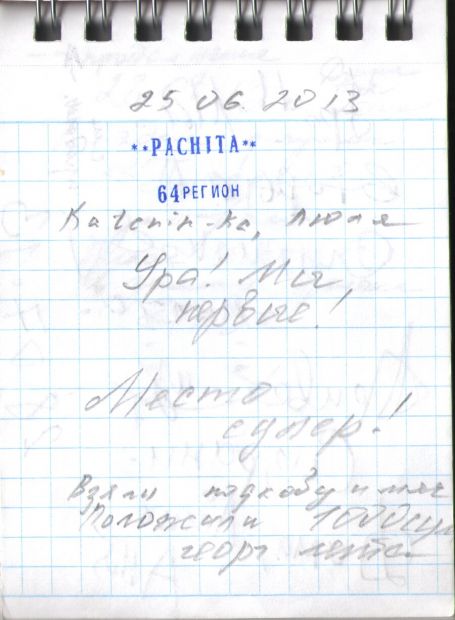 25.06.2013
**PACHITA**
64РЕГИОН
Katenin-ka, Люля
Ура! Мы
первые!
Место
супер!
Взяли подкову и мяч
Положили 1000 сум
георг. лента